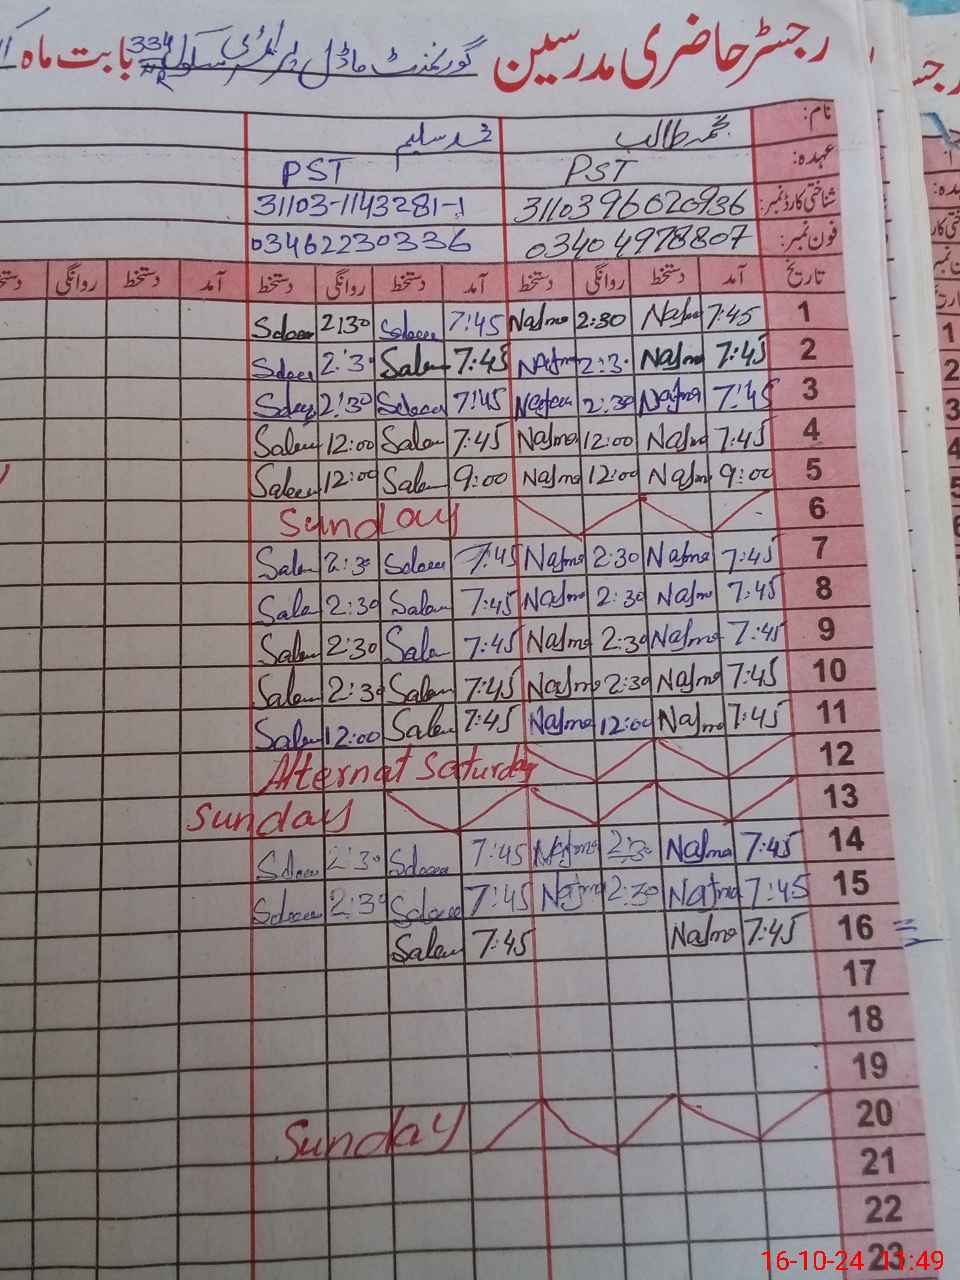 رجسٹر حاضری مدرسین گورنمنٹ ماڈل پرائمری سکول 334 بابت ماہ
نام: نجمہ طالب محمد سلیم
عہدہ: PST PST
شناختی کارڈ نمبر: 3110396020936 31103-1143281-1
فون نمبر: 03404978807 03462230336
تاریخ آمد دستخط روانگی دستخط آمد دستخط روانگی دستخط آمد دستخط روانگی
1 7:45 Najma 2:30 Najma 7:45 Saleem 2:30 Saleem
2 7:45 Najma 2:30 Najma 7:45 Saleem 2:30 Saleem
3 7:45 Najma 2:30 Najma 7:45 Saleem 2:30 Saleem
4 7:45 Najma 12:00 Najma 7:45 Saleem 12:00 Saleem
5 9:00 Najma 12:00 Najma 9:00 Saleem 12:00 Saleem
6 Sunday
7 7:45 Najma 2:30 Najma 7:45 Saleem 2:30 Saleem
8 7:45 Najma 2:30 Najma 7:45 Saleem 2:30 Saleem
9 7:45 Najma 2:30 Najma 7:45 Saleem 2:30 Saleem
10 7:45 Najma 2:30 Najma 7:45 Saleem 2:30 Saleem
11 7:45 Najma 12:00 Najma 7:45 Saleem 12:00 Saleem
12 Alternat Saturday
13 Sunday
14 7:45 Najma 2:30 Najma 7:45 Saleem 2:30 Saleem
15 7:45 Najma 2:30 Najma 7:45 Saleem 2:30 Saleem
16 7:45 Najma 7:45 Saleem
17
18
19
20 Sunday
21
22
23
16-10-24 11:49